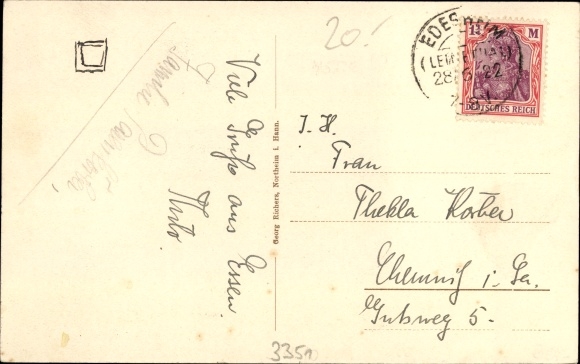 20.-
EDESHEIM
(LEINETAL)
28.6.22
7-8
1¼ M
DEUTSCHES REICH
Viele Grüße aus Essen.
Georg Richers, Northeim i. Hann.
I. H.
Frau
Thekla Körber
Chemnitz i. Sa.
Gutsweg 5.
3351